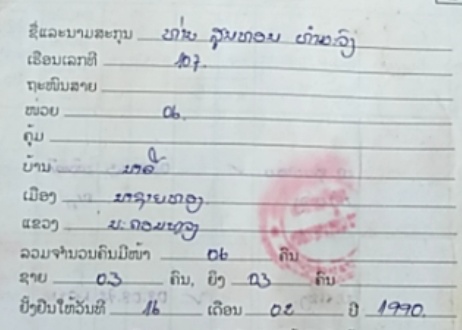 ຊື່ແລະນາມສະກຸນ ທ່ານ ສູນທອນ
ເຮືອນເລກທີ 107.
ຖະໜົນສາຍ
ໜ່ວຍ 06.
ຄຸ້ມ
ບ້ານ
ເມືອງ ນາຊາຍທອງ
ແຂວງ ນະຄອນຫຼວງ
ລວມຈຳນວນຄົນມີໜ້າ 06 ຄົນ
ຊາຍ 03 ຄົນ, ຍິງ 03 ຄົນ
ຢັ້ງຢືນໃຫ້ວັນທີ 16 ເດືອນ 02 ປີ 1990.